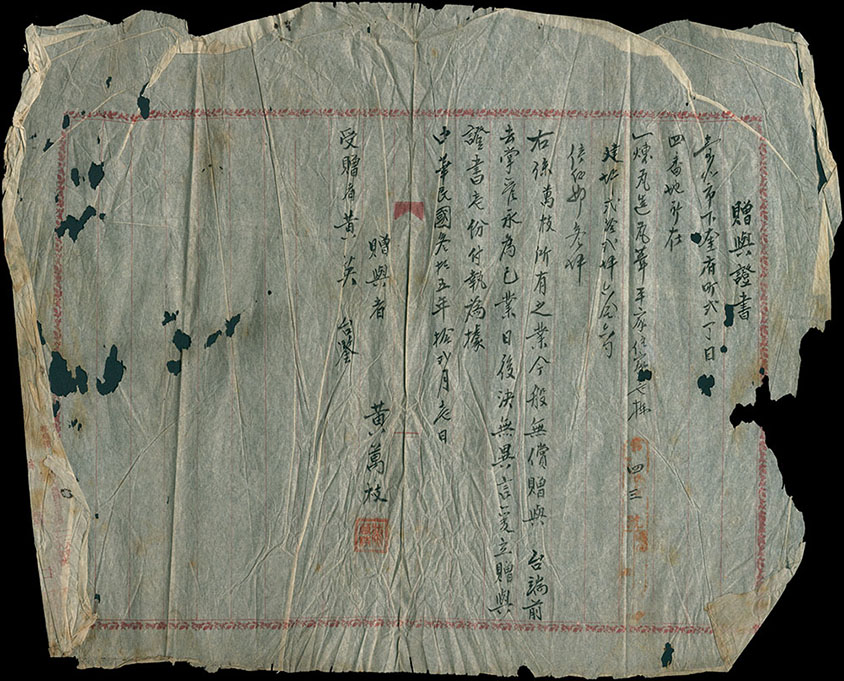 贈與證書
臺北市下奎府町弍丁目
四番地所在
一煉瓦造瓦葺平家住家
建坪弍拾弍坪六合六勺
四三
右係萬枝所有之業今般無償贈與 台端前
去掌管永為己業日後決無異言爰立贈與
證書壱份付執為據
中華民國叁拾五年拾弍月壱日
贈與者 黃萬枝
受贈者 黃英 台鑒